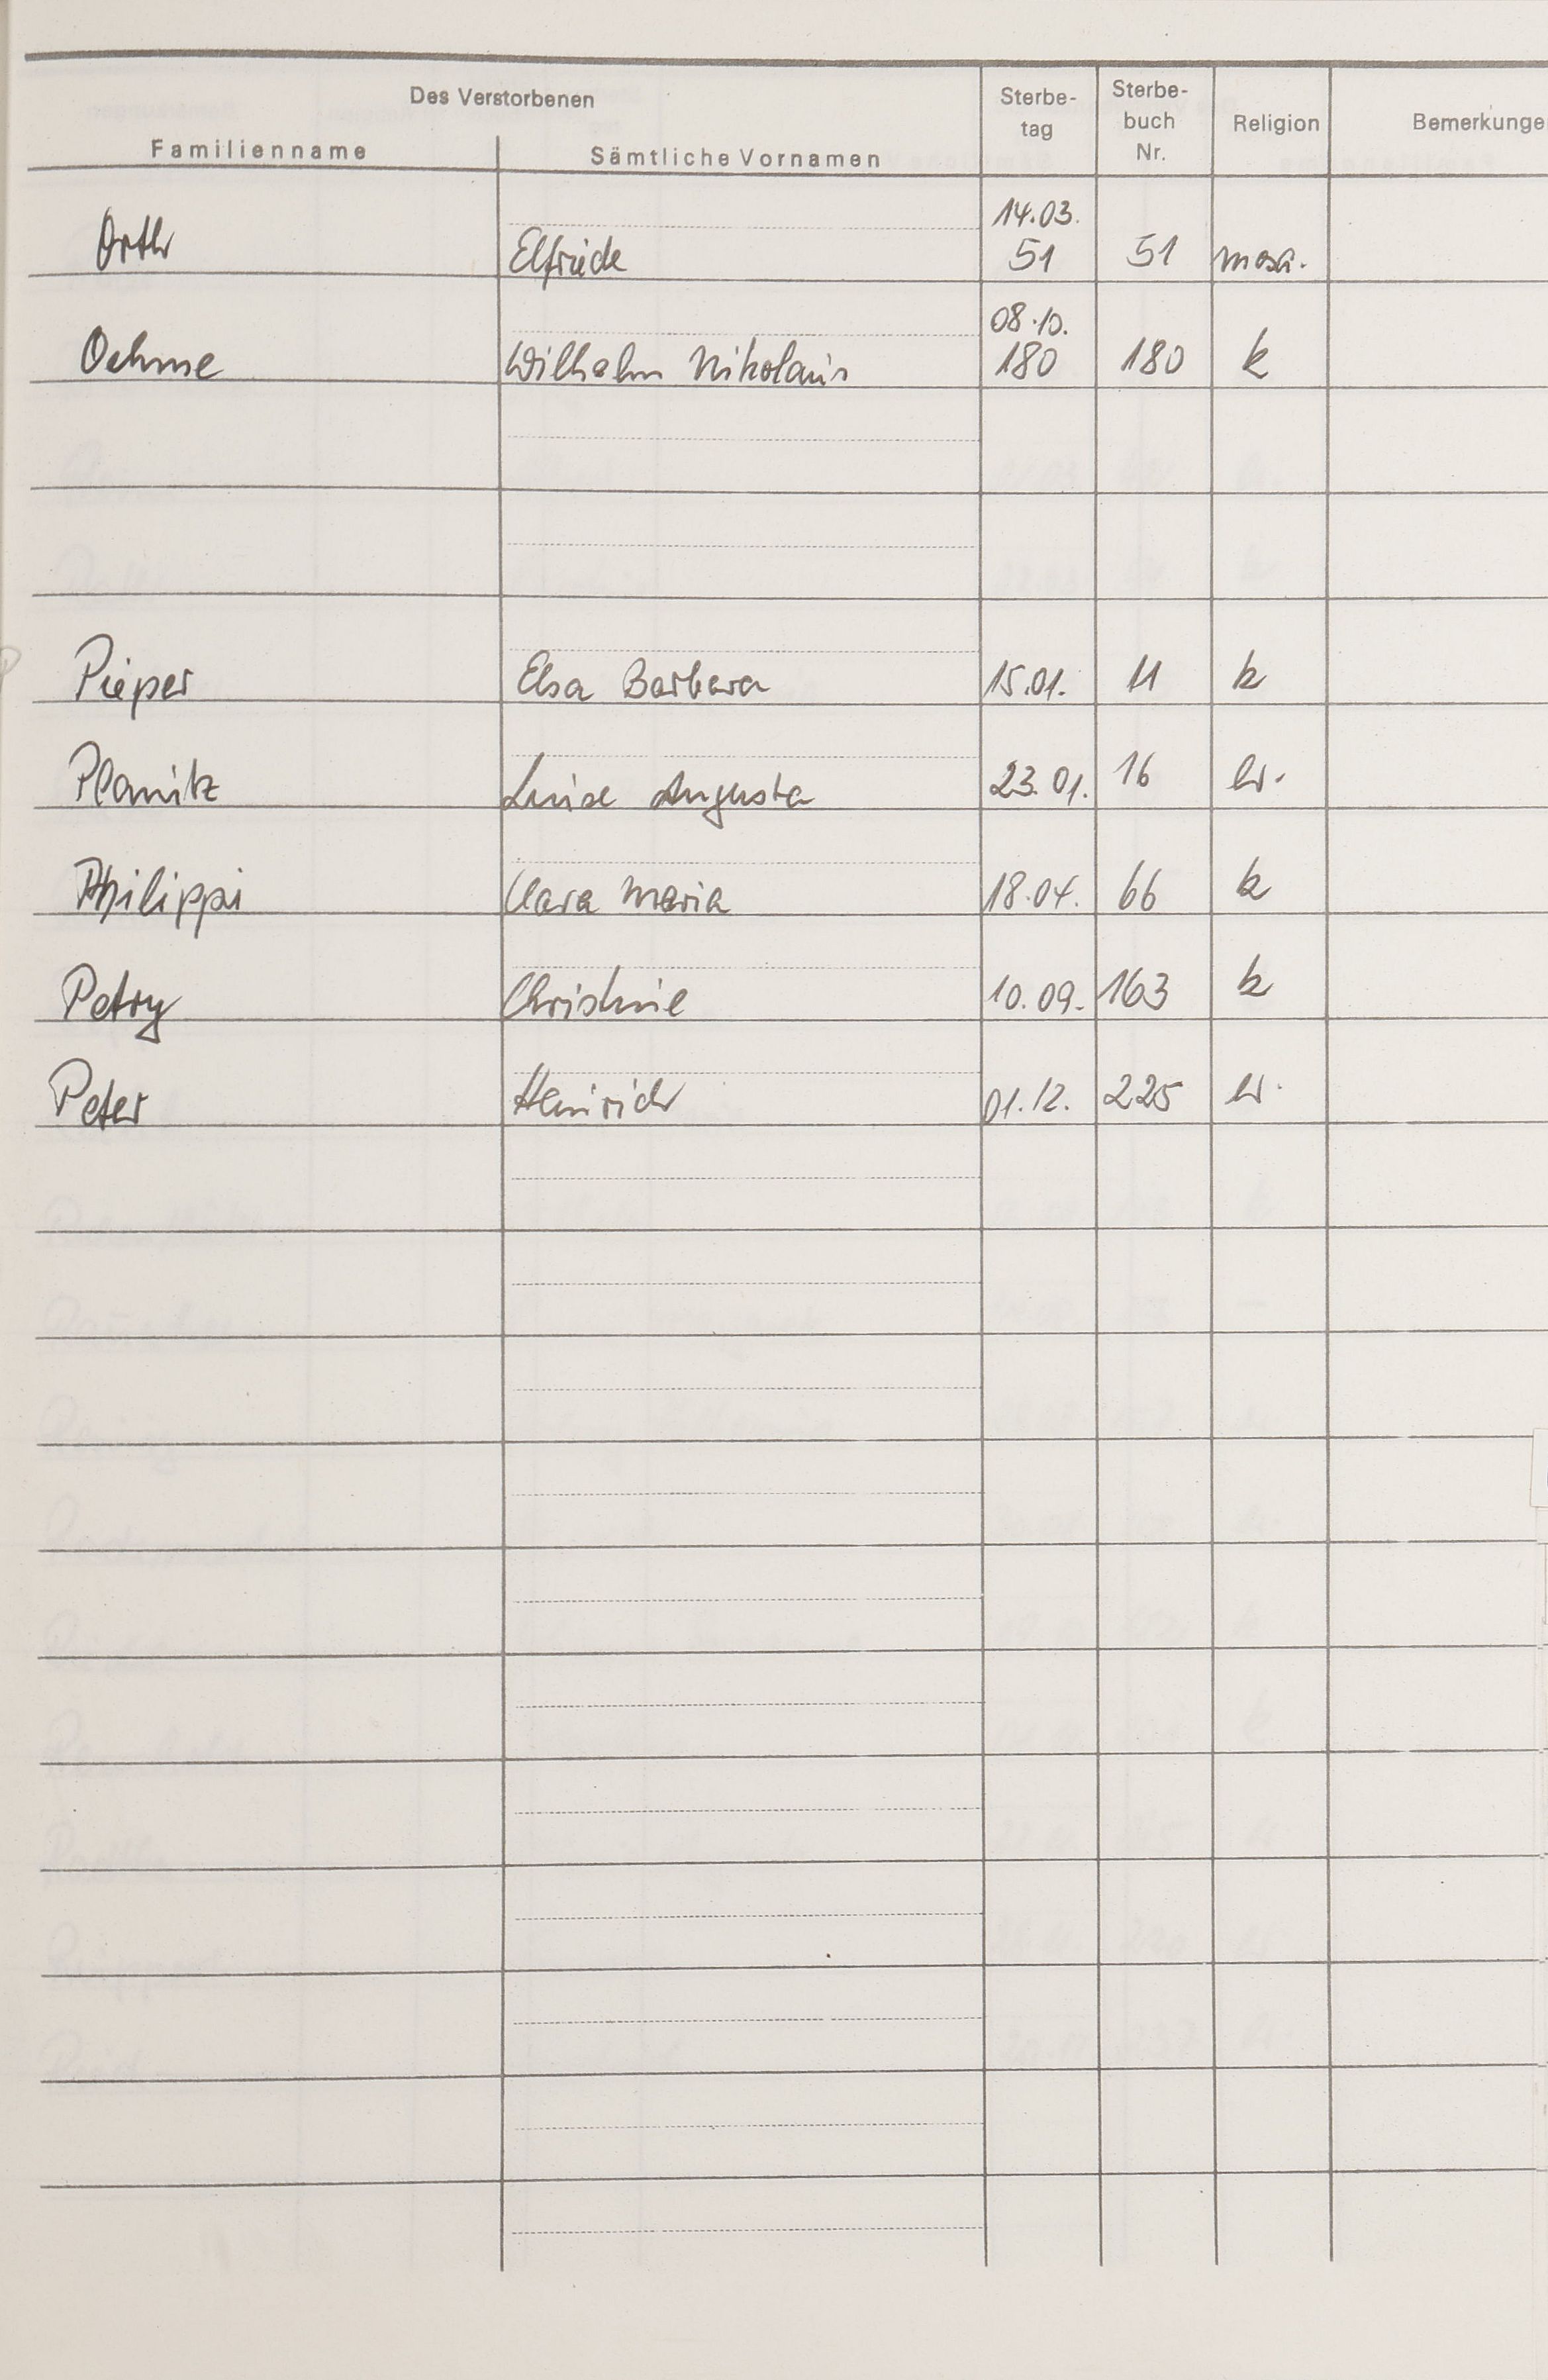 Des Verstorbenen
Familienname Sämtliche Vornamen Sterbe-tag Sterbe-buch Nr. Religion Bemerkunge
14.03.
Orth Elfriede 51 51 mosa.
08.10.
Oehme Wilhelm Nikolaus 180 180 k
P
Pieper Elsa Barbara 15.01. 11 k
Planitz Luise Augusta 23.01. 16 ev.
Philippi Clara Maria 18.04. 66 k
Petry Christine 10.09. 163 k
Peter Heinrich 01.12. 225 ev.